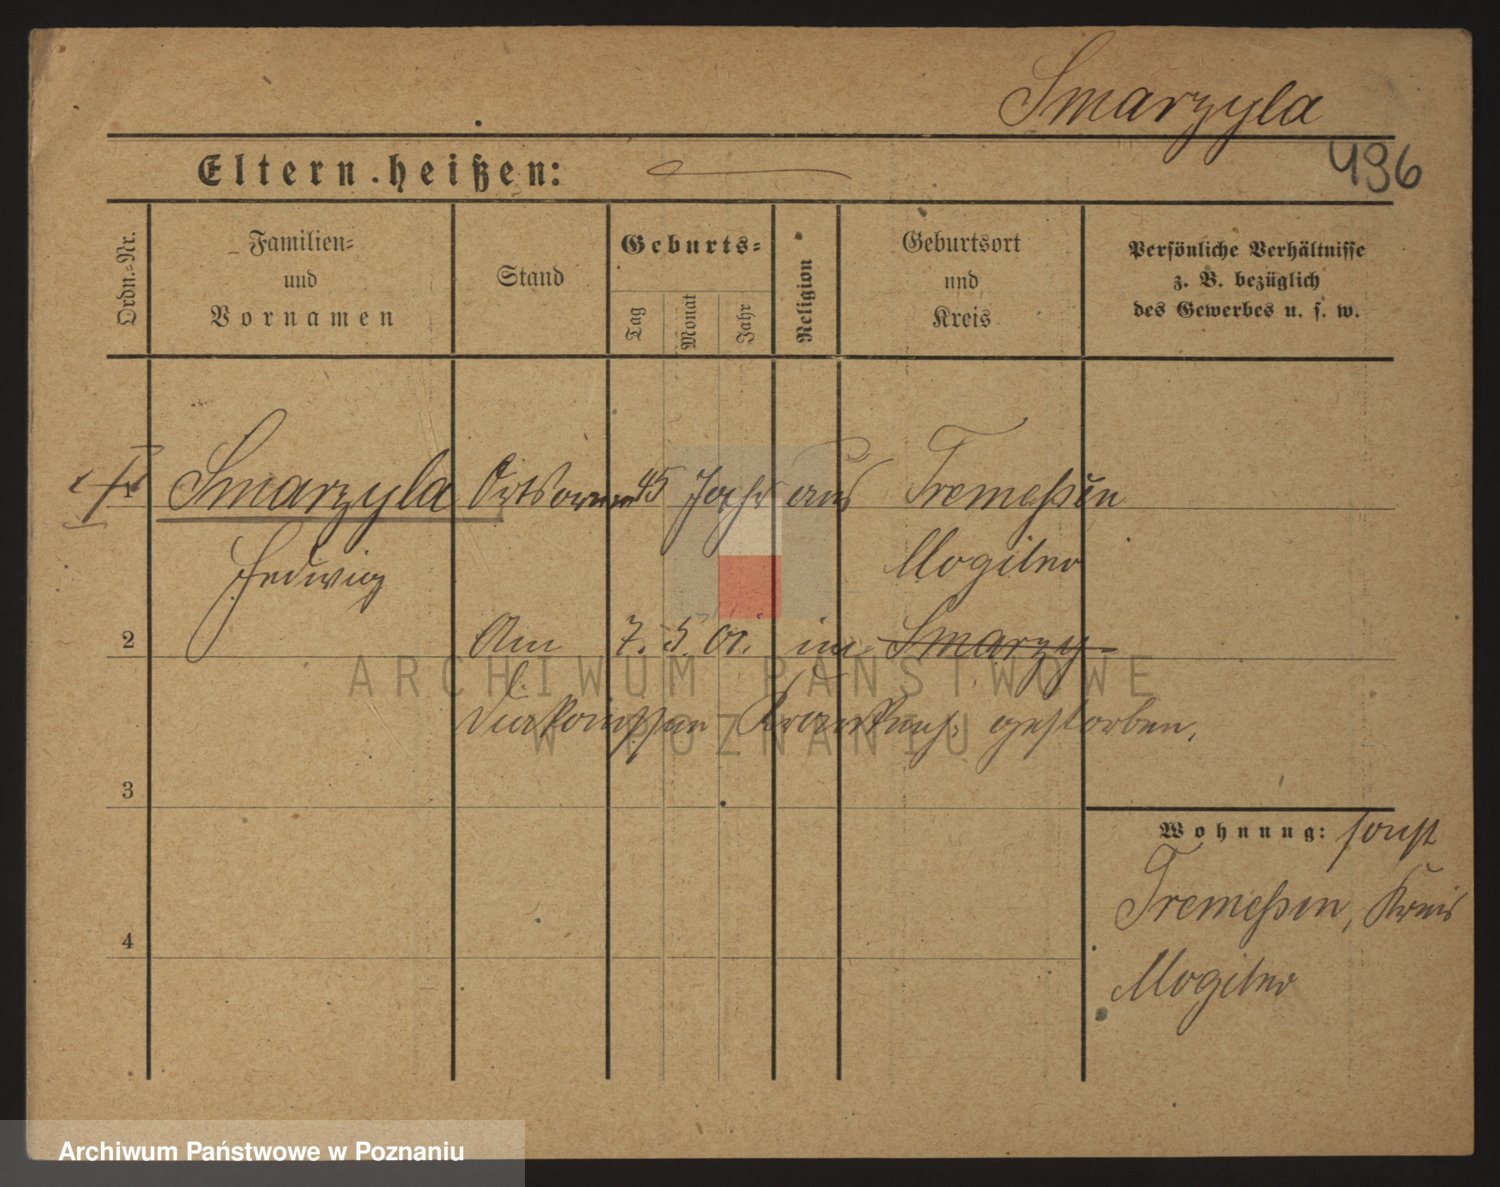 Smarzyla
496
Eltern heißen:
Ordn.=Nr.
Familien=
und
Vornamen
Stand
Geburts=
Tag
Monat
Jahr
Religion
Geburtsort
und
Kreis
Persönliche Verhältnisse
z. B. bezüglich
des Gewerbes u. s. w.
1 Smarzyla Ortsarme 45 Jahr aus Tremeßen
Hedwig Mogilno
2 Am 7. 5. 01. im Smarzy-
Diakonissen Krankenh: gestorben.
3
Wohnung: sonst
Tremeßen, Kreis
4
Mogilno
ARCHIWUM PAŃSTWOWE
W POZNANIU
Archiwum Państwowe w Poznaniu